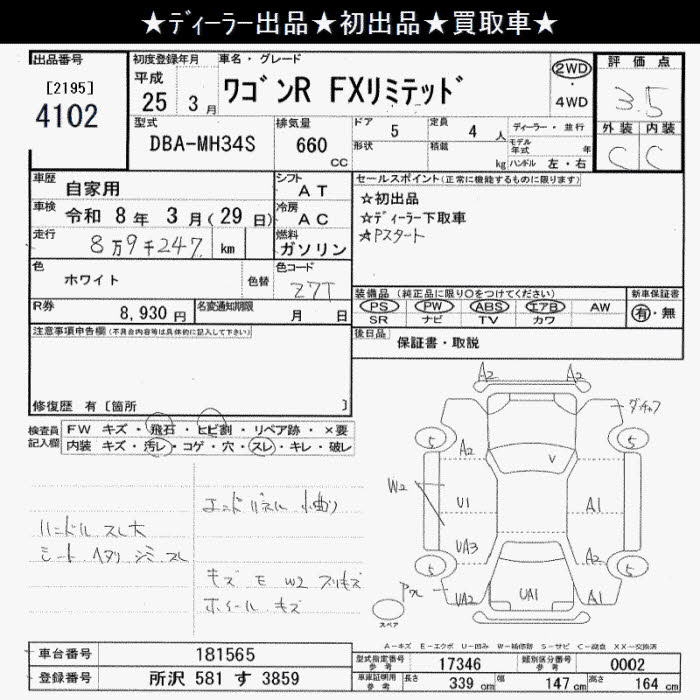 ★ディーラー出品★初出品★買取車★
出品番号
[2195]
4102
初度登録年月
平成
25 3月
車名・グレード
ワゴンR FXリミテッド
2WD
・
4WD
評価点
3.5
外装 内装
C C
型式
DBA-MH34S
排気量
660
cc
ドア 5
定員 4 人
形状
積載 kg
ディーラー・並行
モデル年式 年
ハンドル 左・右
車歴 自家用
シフト AT
車検 令和 8年 3月(29日)
冷房 AC
走行 8万9千247 km
燃料 ガソリン
色 ホワイト
色替
色コード Z7T
R券 8,930円
名変通知期限 月 日
セールスポイント(正常に機能するものに限ります)
☆初出品
☆ディーラー下取車
☆Pスタート
装備品(純正品に限り○をつけてください)
新車保証書
PS PW ABS エアB AW
有・無
SR ナビ TV カワ
後日品 保証書・取説
注意事項申告欄(不具合内容等は具体的に記入して下さい)
修復歴 有[箇所 ]
検査員記入欄
FW キズ・飛石・ヒビ割・リペア跡・×要
内装 キズ・汚レ・コゲ・穴・スレ・キレ・破レ
エンドパネル 小曲り
ハンドル スレ大
シート ヘタリ シミ スレ
キズ E W2 スリキズ
ホイール キズ
A2 A2
5 5
A2
V
W2
U1 A1
UA3 A2
5 5
UA2 UA1 A1
スペア
A-キズ E-エクボ U-凹み W-補修跡 S-サビ C-腐食 XX-交換済
車台番号 181565
登録番号 所沢 581 す 3859
型式指定番号 参考 17346
類別区分番号 参考 0002
車庫証明用 参考 長さ 339 cm 幅 147 cm 高さ 164 cm